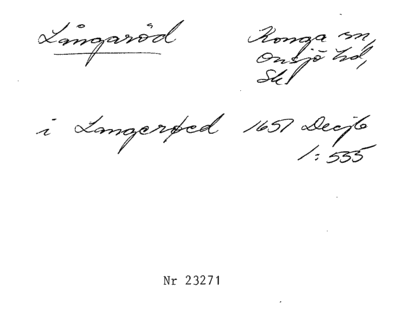 Långaröd Konga sn,
Onsjö hd,
Sk
i Langerøed 1651 Decjb
1:555
Nr 23271